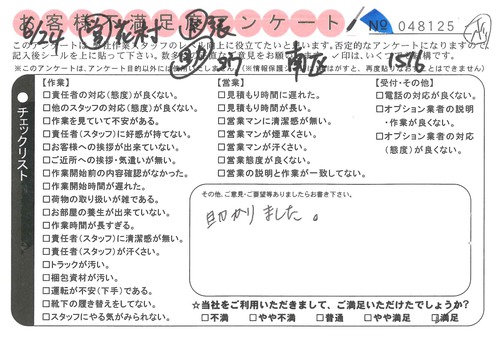 お客様不満足度アンケート
No 048125
8/24
南区
1576
このアンケートは
作業スタッフのレベル向上に役立てたいと思います。否定的なアンケートになりますので
✓印は、いくつでも結構です。
【作業】
□責任者の対応(態度)が良くない。
□他のスタッフの対応(態度)が良くない。
□作業を見ていて不安がある。
□責任者(スタッフ)に好感が持てない。
□お客様への挨拶が出来ていない。
□ご近所への挨拶・気遣いが無い。
□作業開始前の内容確認がなかった。
□作業開始時間が遅れた。
□荷物の取り扱いが雑である。
□お部屋の養生が出来ていない。
□作業時間が長すぎる。
□責任者(スタッフ)に清潔感が無い。
□責任者(スタッフ)が汗くさい。
□トラックが汚い。
□梱包資材が汚い。
□運転が不安(下手)である。
□靴下の履き替えをしてない。
□スタッフにやる気がみられない。
【営業】
□見積もり時間に遅れた。
□見積もり時間が長い。
□営業マンに清潔感が無い。
□営業マンが煙草くさい。
□営業マンが汗くさい。
□営業態度が良くない。
□営業の説明と作業が一致してない。
【受付・その他】
□電話の対応が良くない。
□オプション業者の説明
・作業が良くない。
□オプション業者の対応
(態度)が良くない。
チェックリスト
その他、ご意見・ご要望等ありましたらお書き下さい。
助かりました。
☆当社をご利用いただきまして、ご満足いただけたでしょうか?
□不満 □やや不満 □普通 □やや満足 □満足